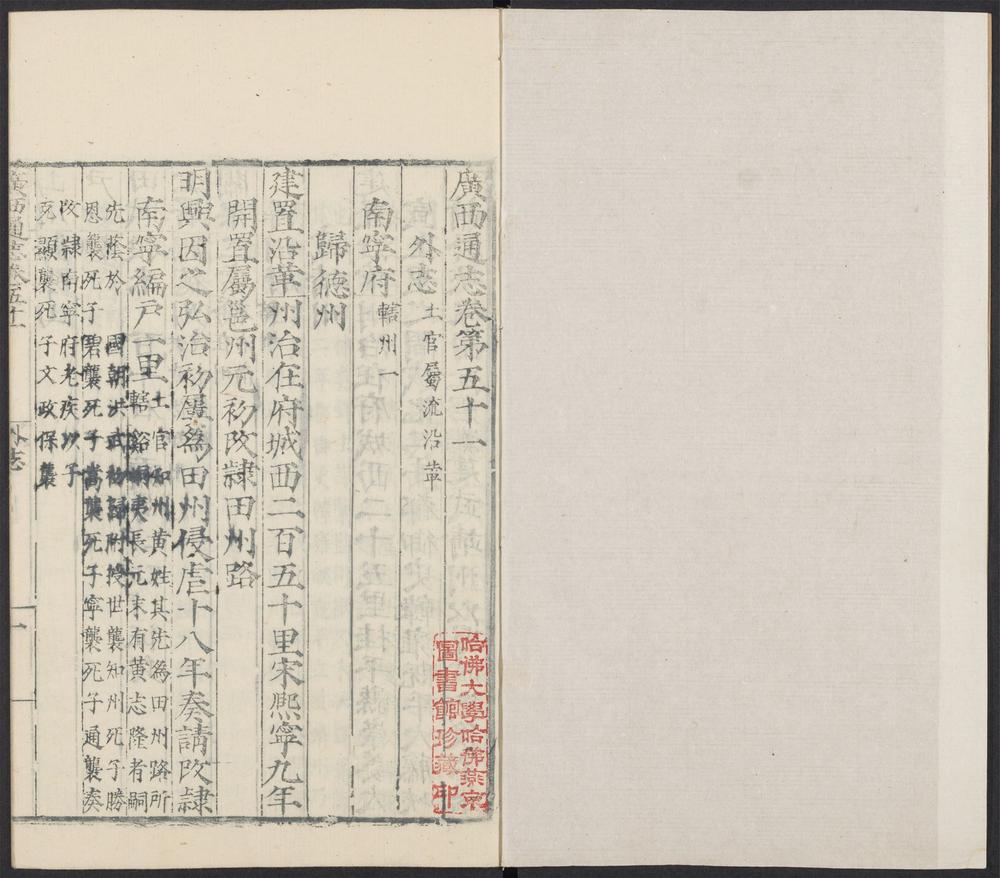 廣西通志卷第五十一
外志 土官屬流沿革
南寧府 轄州一
歸德州
建置沿革州治在府城西二百五十里宋熙寧九年
開置屬邕州元初改隸田州路
明興因之弘治初屢為田州侵虐十八年奏請改隸
南寧編戶一里 土官知州黃姓其先為田州路所
轄谿峒夷長元末有黃志隆者嗣
先蔭於 國朝洪武初歸附授世襲知州死子勝
恩襲死子碧襲死子嵩襲死子寧襲死子通襲奏
改隸南寧府老疾以子
死顯襲死子文政保襲
廣西通志卷五十一
外志
一
哈佛大學哈佛燕京
圖書館珍藏印